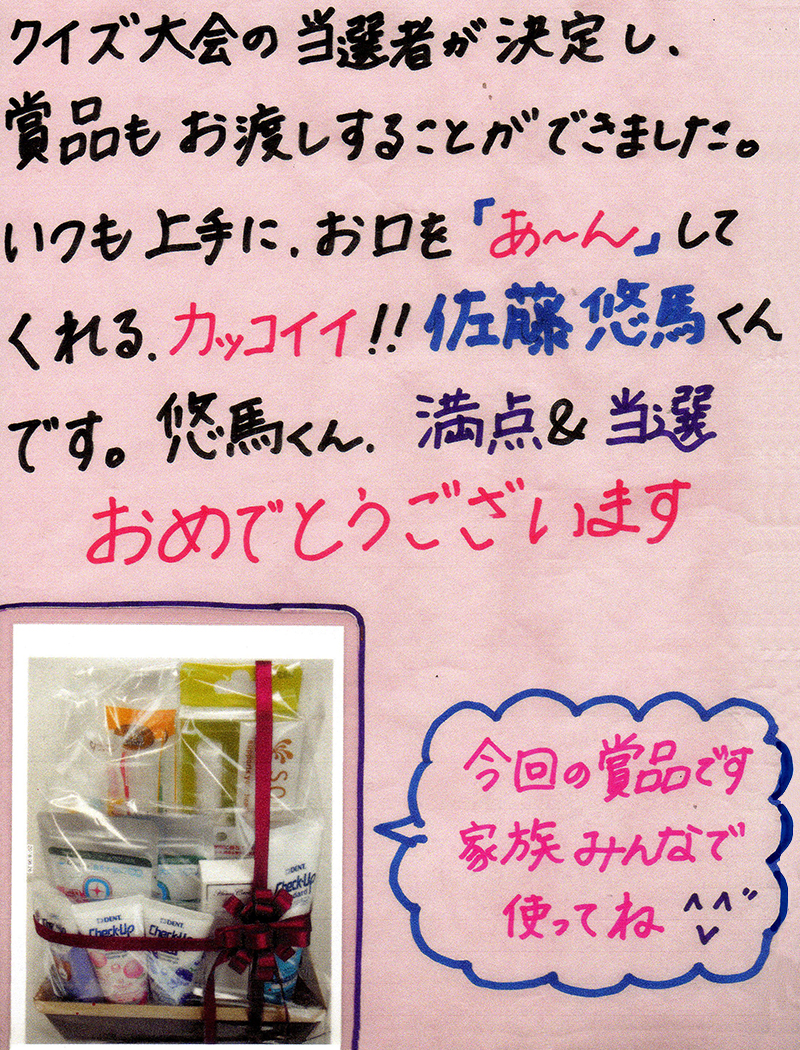 クイズ大会の当選者が決定し、
賞品もお渡しすることができました。
いつも上手に、お口を「あ～ん」して
くれる、カッコイイ!!佐藤悠馬くん
です。悠馬くん、満点&当選
おめでとうございます
今回の賞品です
家族みんなで
使ってね
DENT.
Check-Up
DENT.
Check-Up
DENT.
Check-Up